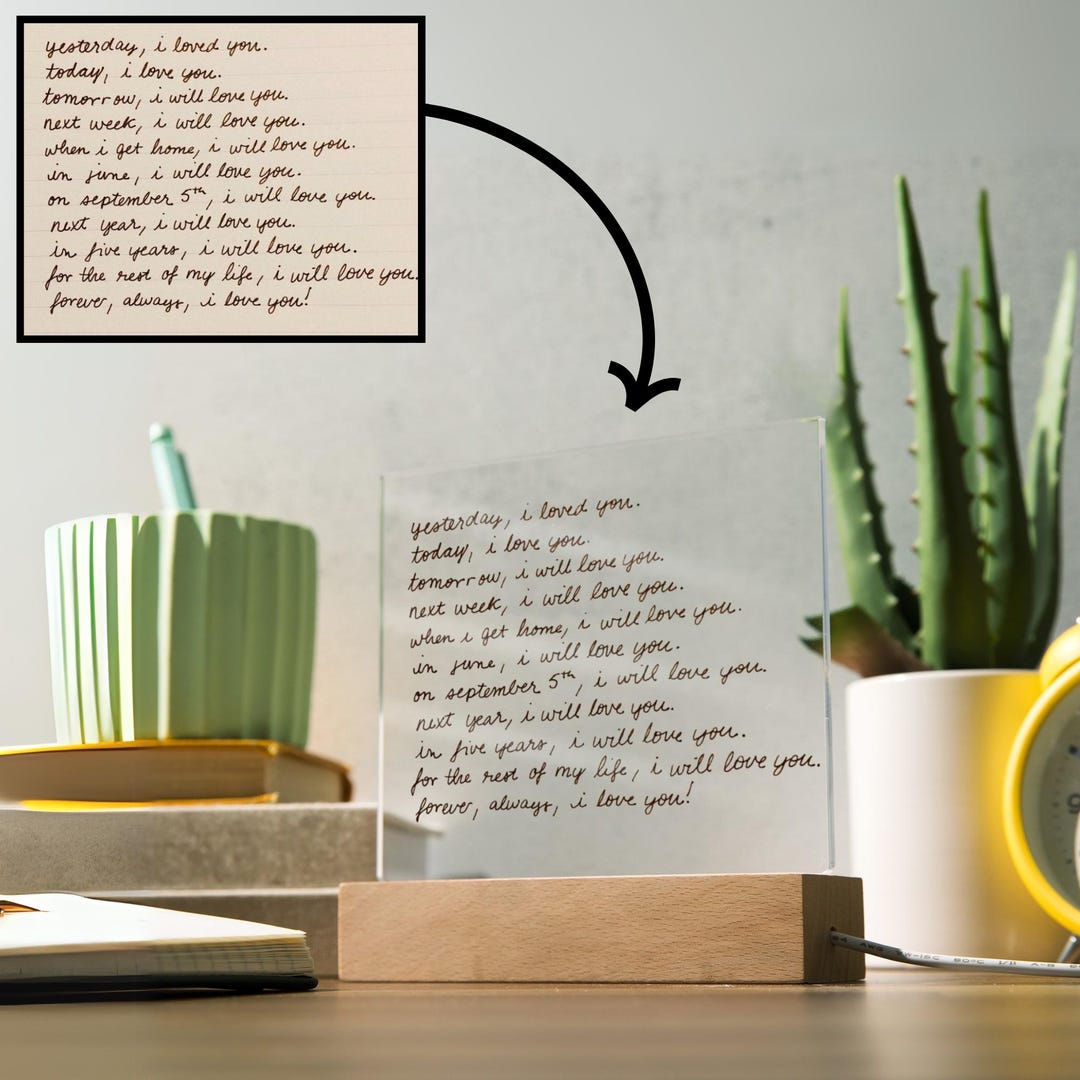 yesterday, i loved you.
today, i love you.
tomorrow, i will love you.
next week, i will love you.
when i get home, i will love you.
in june, i will love you.
on september 5th, i will love you.
next year, i will love you.
in five years, i will love you.
for the rest of my life, i will love you.
forever, always, i love you!
yesterday, i loved you.
today, i love you.
tomorrow, i will love you.
next week, i will love you.
when i get home, i will love you.
in june, i will love you.
on september 5th, i will love you.
next year, i will love you.
in five years, i will love you.
for the rest of my life, i will love you.
forever, always, i love you!